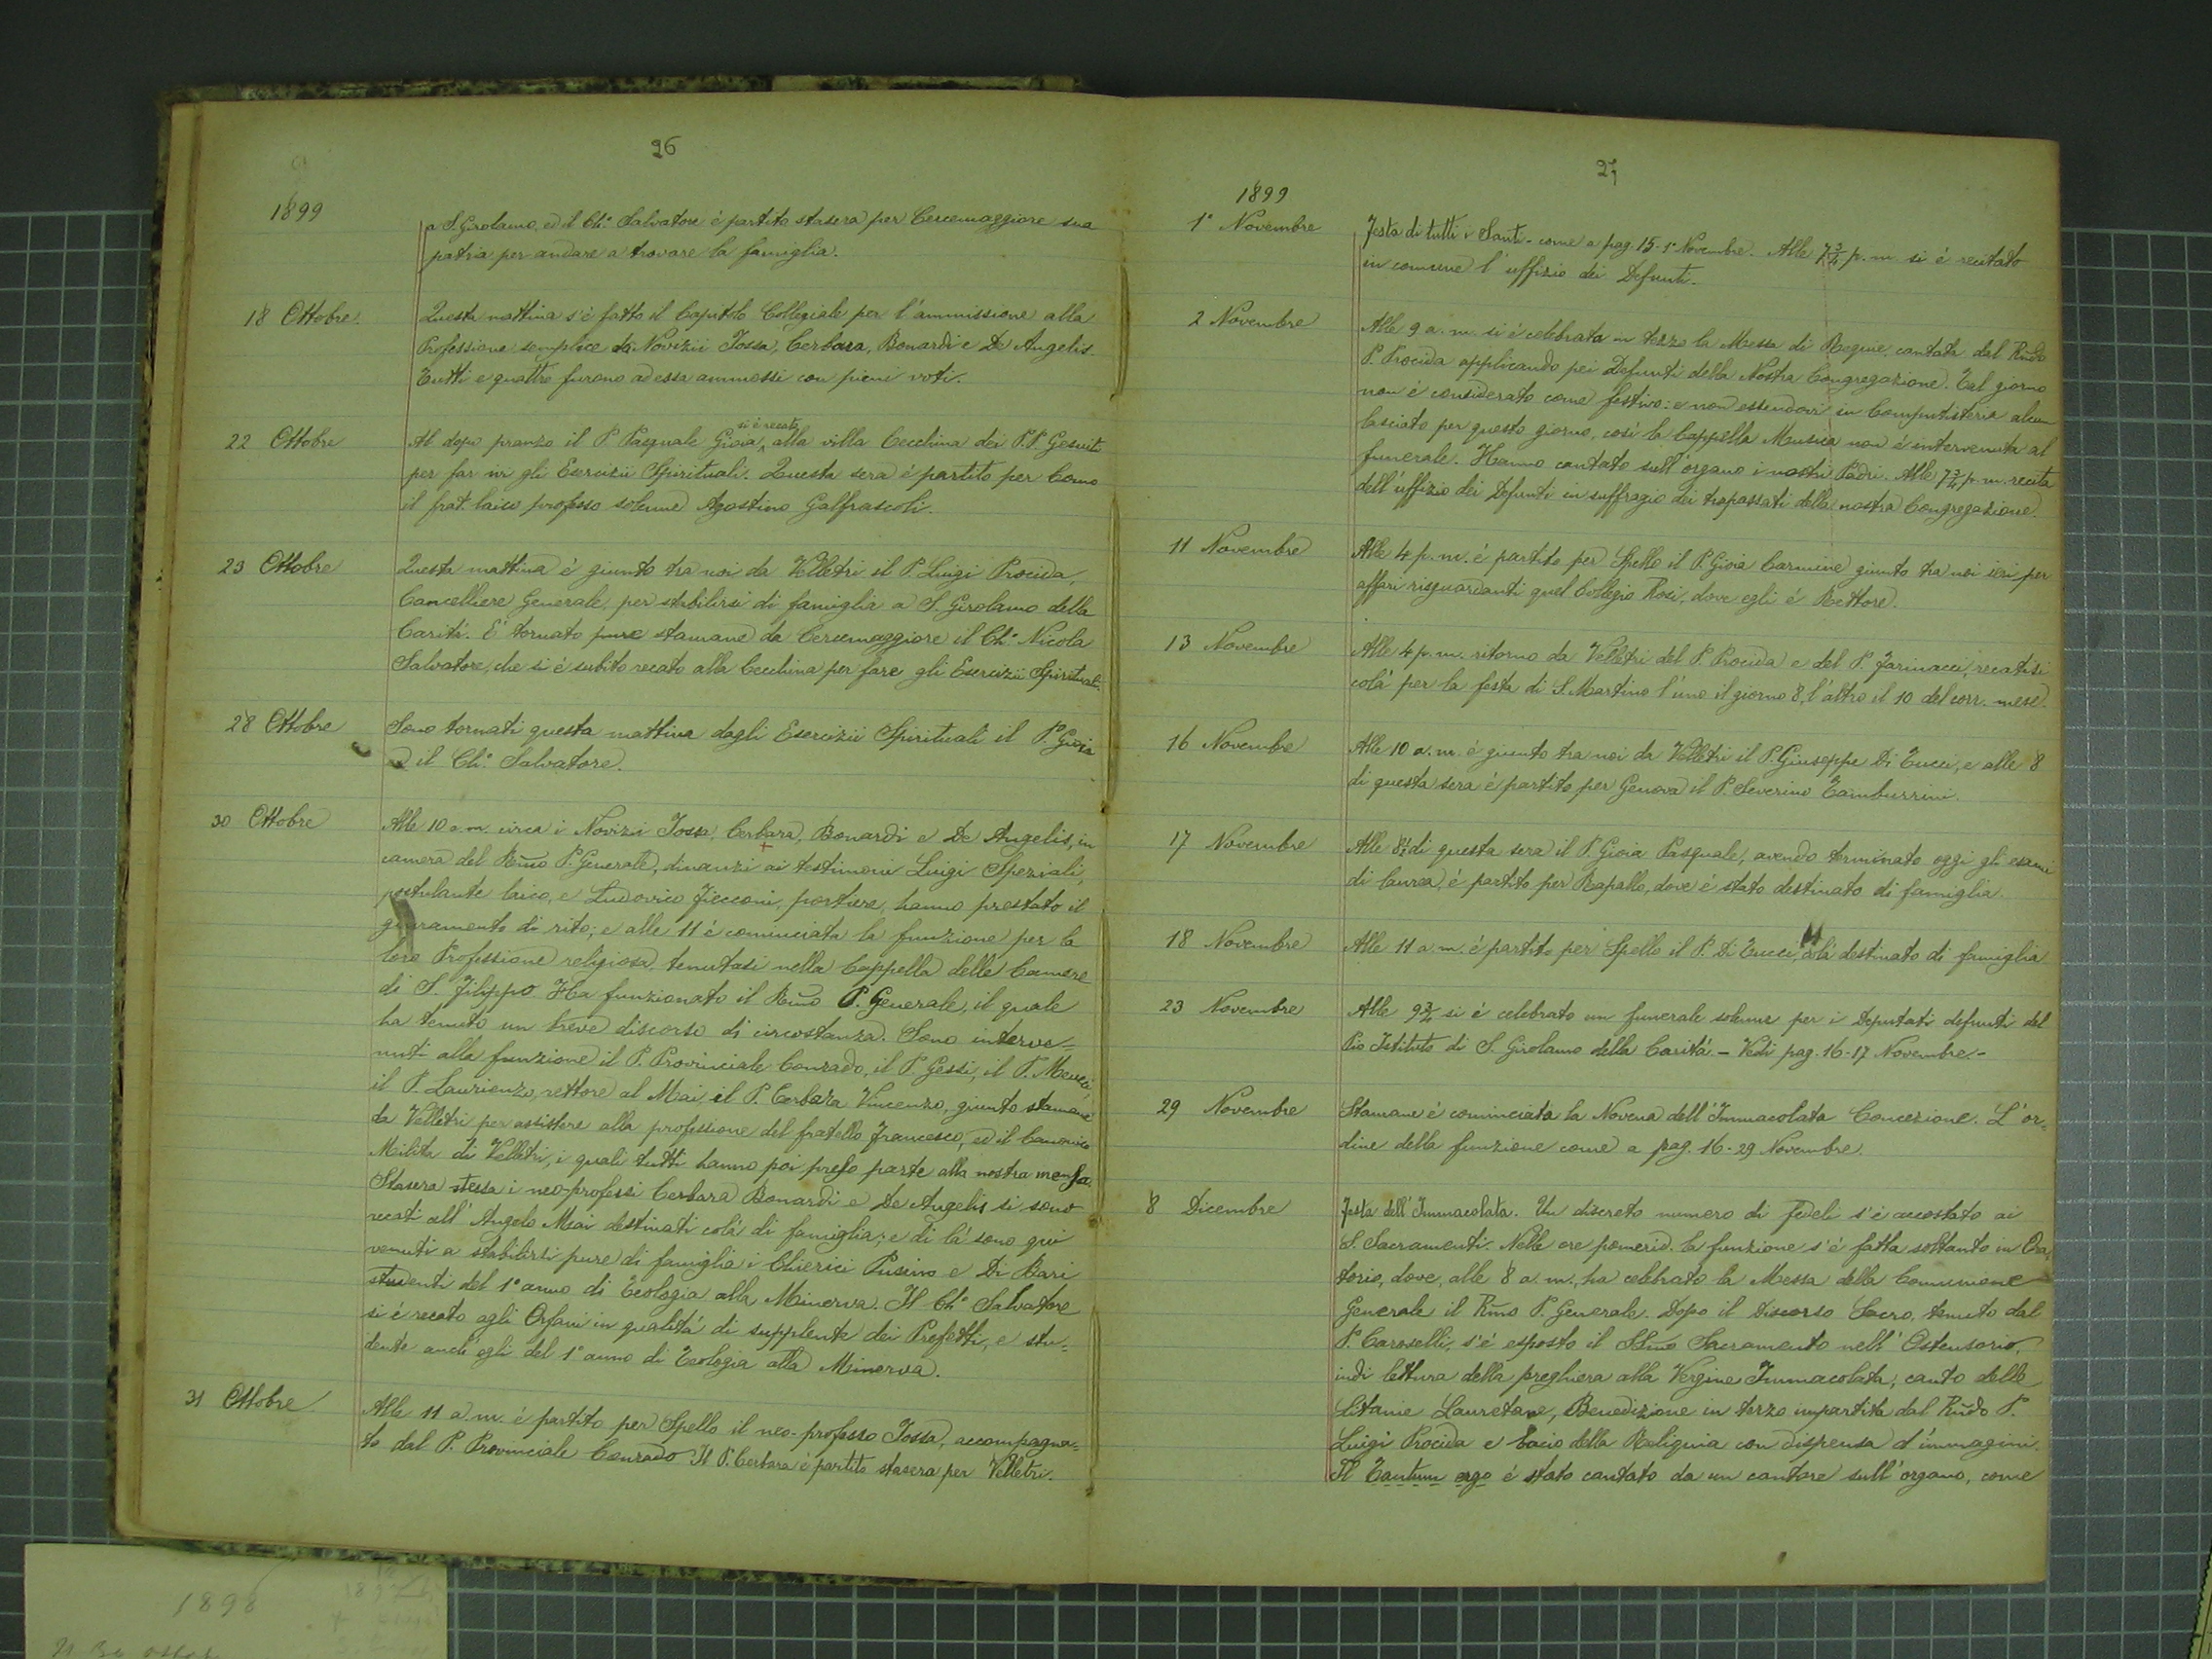 26
1899
a S. Girolamo, ed il Ch.° Salvatore é partito stasera per Cercemaggiore sua
patria per andare a trovare la famiglia.
18 Ottobre.
Questa mattina s'é fatto il Capitolo Collegiale per l'ammissione alla
Professione semplice dei Novizii Tossa, Cerbara, Bonardi e De Angelis.
Tutti e quattro furono ad essa ammessi con pieni voti.
22 Ottobre
si é recato
Al dopo pranzo il P. Pasquale Gioia, alla villa Cecchina dei P.P. Gesuiti
per far ivi gli Esercizii Spirituali. Questa sera é partito per Como
il frat. laico professo solenne Agostino Galfrascoli.
23 Ottobre
Questa mattina é giunto tra noi da Velletri il P. Luigi Procida,
Cancelliere Generale, per stabilirsi di famiglia a S. Girolamo della
Caritá. E' tornato pure stamane da Cercemaggiore il Ch.° Nicola
Salvatore, che si é subito recato alla Cecchina per fare gli Esercizii Spirituali.
28 Ottobre
Sono tornati questa mattina dagli Esercizii Spirituali il P. Gioia
e il Ch.° Salvatore.
30 Ottobre
Alle 10 a.m. circa i Novizii Tossa, Cerbara, Bonardi e De Angelis, in
camera del Rm̃o P. Generale, dinanzi ai testimoni Luigi Speziali,
postulante laico, e Ludovico Ficconi, portiere, hanno prestato il
giuramento di rito; e alle 11 é cominciata la funzione per la
loro Professione religiosa, tenutasi nella Cappella delle Camere
di S. Filippo. Ha funzionato il Rm̃o P. Generale, il quale
ha tenuto un breve discorso di circostanza. Sono interve=
nuti alla funzione il P. Provinciale Conrado, il P. Gessi, il P. Meucci
il P. Laurienzo, rettore al Mai, il P. Cerbara Vincenzo, giunto stamane
da Velletri per assistere alla professione del fratello Francesco, ed il Canonico
Milita di Velletri, i quali tutti hanno poi preso parte alla nostra mensa.
Stasera stessa i neo-professi Cerbara Bonardi e De Angelis si sono
recati all'Angelo Mai destinati colá di famiglia; e di lá sono qui
venuti a stabilirsi pure di famiglia i Chierici Pusino e Di Bari
studenti del 1° anno di Teologia alla Minerva. Il Ch.° Salvatore
si é recato agli Orfani in qualitá di supplente dei Prefetti, e stu=
dente anch'egli del 1° anno di Teologia alla Minerva.
31 Ottobre
Alle 11 a.m. é partito per Spello il neo-professo Tossa, accompagna=
to dal P. Provinciale Conrado. Il P. Cerbara é partito stasera per Velletri.
27
1899
1° Novembre
Festa di tutti i Santi - come a pag. 15 - 1° Novembre. Alle 7¾ p.m. si é recitato
in comune l'uffizio dei Defunti.
2 Novembre
Alle 9 a.m. si é celebrata in terzo la Messa di Requie, cantata dal Rñdo
P. Procida applicando pei Defunti della Nostra Congregazione. Tal giorno
non é considerato come festivo: e non essendovi in Computisteria alcun
lasciato per questo giorno, cosí la Cappella Musica non é intervenuta al
funerale. Hanno cantato sull'organo i nostri Padri. Alle 7¾ p.m. recita
dell'uffizio dei Defunti in suffragio dei trapassati della nostra Congregazione.
11 Novembre
Alle 4 p.m. é partito per Spello il P. Gioia Carmine giunto tra noi ieri per
affari risguardanti quel Collegio Rosi, dove egli é Rettore.
13 Novembre
Alle 4 p.m. ritorno da Velletri del P. Procida e del P. Farinacci, recatisi
colá per la festa di S. Martino l'uno il giorno 8, l'altro il 10 del corr. mese.
16 Novembre
Alle 10 a.m. é giunto tra noi da Velletri il P. Giuseppe Di Tucci, e alle 8
di questa sera é partito per Genova il P. Severino Tamburrini.
17 Novembre
Alle 8½ di questa sera il P. Gioia Pasquale, avendo terminato oggi gli esami
di laurea, é partito per Rapallo, dove é stato destinato di famiglia.
18 Novembre
Alle 11 a.m. é partito per Spello il P. Di Tucci, colá destinato di famiglia
23 Novembre
Alle 9¾ si é celebrato un funerale solenne per i Deputati defunti del
Pio Istituto di S. Girolamo della Caritá - Vedi pag. 16-17 Novembre -
29 Novembre
Stamane é cominciata la Novena dell'Immacolata Concezione. L'or=
dine della funzione come a pag. 16 - 29 Novembre.
8 Dicembre
Festa dell'Immacolata. Un discreto numero di fedeli s'é accostato ai
S. Sacramenti. Nelle ore pomerid. la funzione s'é fatta soltanto in Ora=
torio, dove, alle 8 a.m., ha celebrato la Messa della Comunione
Generale il Rm̃o P. Generale. Dopo il Discorso Sacro, tenuto dal
P. Caroselli, s'é esposto il SSm̃o Sacramento nell'Ostensorio,
indi lettura della preghiera alla Vergine Immacolata, canto delle
Litanie Lauretane, Benedizione in terzo impartita dal Rñdo P.
Luigi Procida e bacio della Reliquia con dispensa d'immagini.
Il Tantum ergo é stato cantato da un cantore sull'organo, come
1898